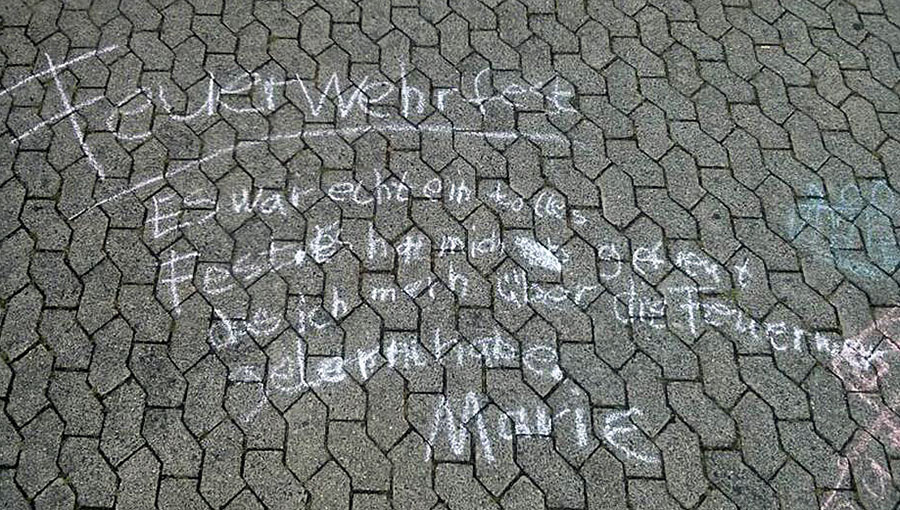 Feuerwehrfest
Es war echt ein tolles
Fest. Es hat mich gefreut
die ich mehr über die Feuerw
Marie